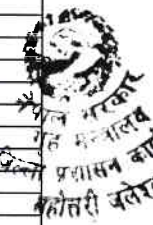 नेपाल सरकार
गृह मन्त्रालय
जिल्ला प्रशासन का
महोत्तरी जले